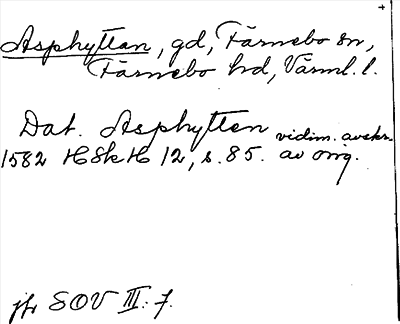 Asphyttan, gd, Färnebo sn,
Färnebo hd, Värml. l.
Dat. Asphytten vidim. avskr.
1582 HSkH 12, s. 85. av orig.
jfr SOV III: 7.